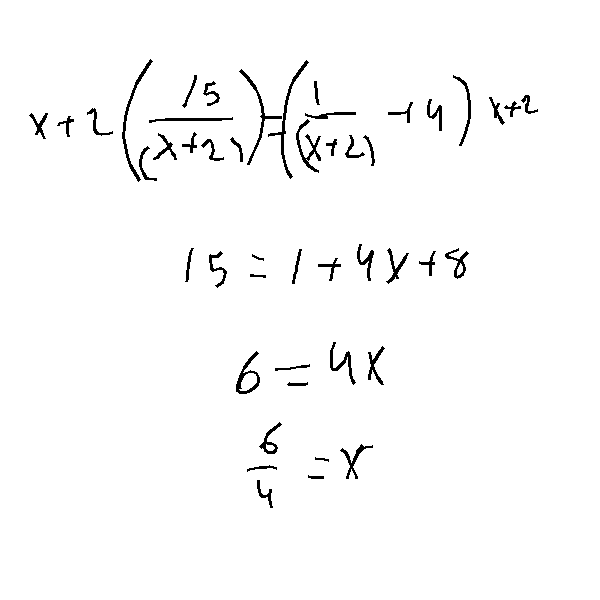 x+2(15/(x+2))=(1/(x+2)+4)x+2
15=1+4x+8
6=4x
6/4=x